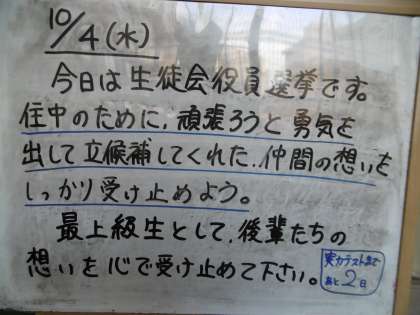 10/4(水)
今日は生徒会役員選挙です。
住中のために,頑張ろうと勇気を
出して立候補してくれた,仲間の想いを
しっかり受け止めよう。
最上級生として,後輩たちの
想いを心で受け止めて下さい。
実力テストまで
あと2日